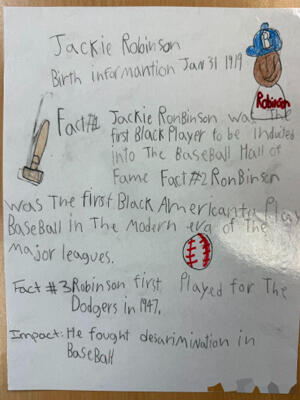 Jackie Robinson
Birth informantion Jan 31 1919
Robinson
Fact #1 Jackie RonBinson was The
first Black Player to be Inducted
into The BaseBall Hall of
Fame Fact #2 RonBinson
was The first Black American to Play
BaseBall in The modern era of The
major leagues.
Fact #3 Robinson first Played for The
Dodgers in 1947.
Impact: He fought desarimination in
BaseBall